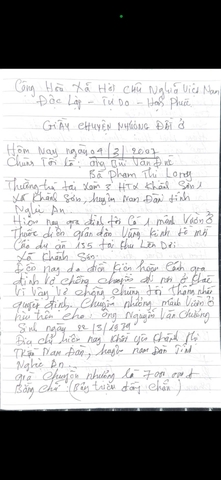 Cộng Hòa Xã Hội Chủ Nghĩa Việt Nam
Độc Lập - Tự Do - Hạnh Phúc
GIẤY CHUYỂN NHƯỢNG ĐẤT Ở
Hôm Nay ngày 09/2/2007
Chúng Tôi là: ông Bùi Văn
Bà Phạm Thị Long
Thường trú tại Xóm 3 HTX Khánh Sơn 1
Xã Khánh Sơn, huyện Nam Đàn tỉnh
Nghệ An
Hiện nay gia đình tôi Có 1 mảnh Vườn Ở
Thuộc diện giãn dân Vùng Kinh tế mới
135 tại Khu
Xã Khánh Sơn
Đến nay do điều Kiện hoàn Cảnh gia
đình Vợ chồng chuyển đi nơi ở Khác
Vì Vậy Vợ chồng Chúng tôi thống nhất
quyết định Chuyển nhượng mảnh Vườn ở
nói trên cho: ông Nguyễn Văn Chương
Sinh ngày 22/5/1979
Địa chỉ hiện nay Khối
Trấn Nam Đàn, huyện nam Đàn Tỉnh
Nghệ An
giá chuyển nhượng là 7
Bằng chữ (